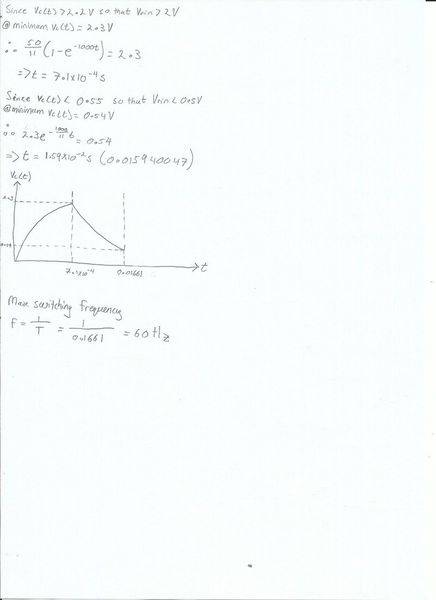 Since Vc(t) > 2.2V so that Vrin > 2V
@ minimum Vc(t) = 2.3V
∴ 50/11 (1-e^-1000t) = 2.3
=> t = 7.1x10^-4 s
Since Vc(t) < 0.55 so that Vrin < 0.5V
@minimum Vc(t) = 0.54V
∴ 2.3e^-1000/11 t = 0.54
=> t = 1.59x10^-2 s (0.015940047)
Vc(t)
2.3
0.54
7.1x10^-4
0.01661
t
Max switching frequency
F = 1/T = 1/0.1661 = 60Hz